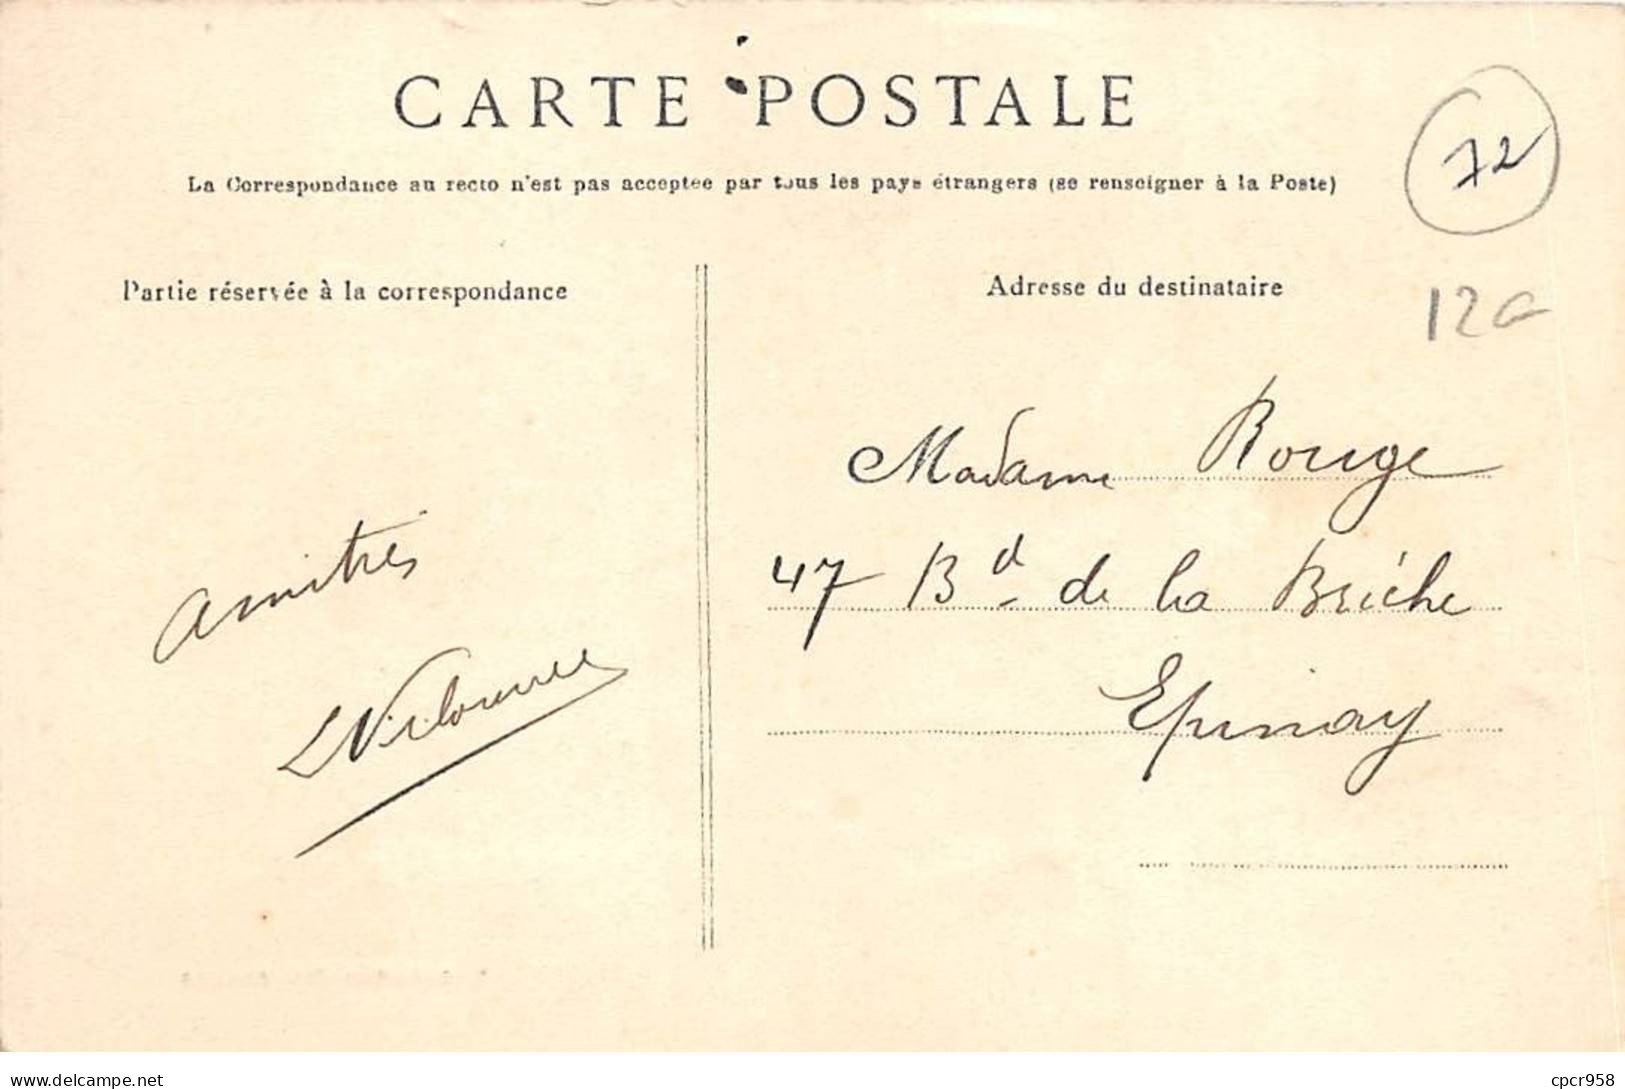 CARTE POSTALE
La Correspondance au recto n'est pas acceptée par tous les pays étrangers (se renseigner à la Poste)
72
Partie réservée à la correspondance
Adresse du destinataire
12
Madame Rouge
47 Bd de la Briche
Epinay
amitiés
cpcr958